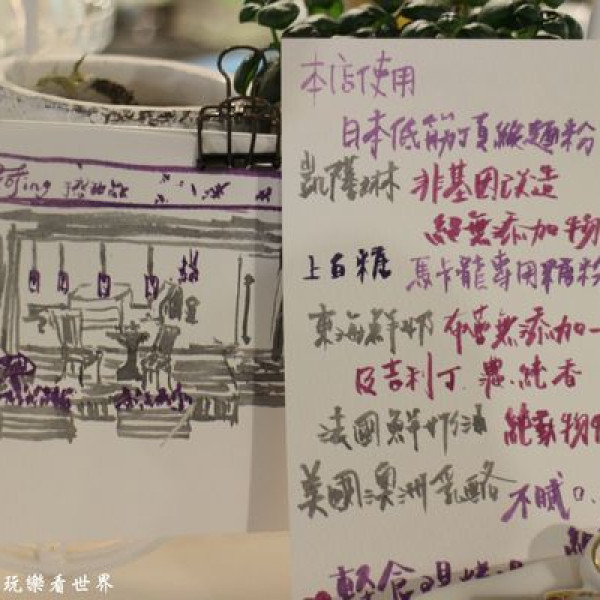 本店使用
日本低筋頂級麵粉
凱薩琳 非基因改造
絕無添加物
上白糖 馬卡龍專用糖粉
東海鮮奶 布蕾無添加
及吉利丁 濃.純香
法國鮮奶油 純動物
美國澳洲乳酪 不膩口
輕食
玩樂看世界